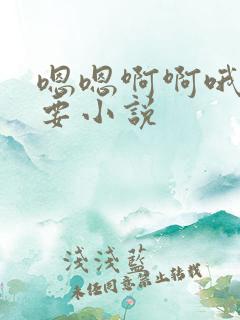 嗯嗯啊啊哦
要小说
浅浅蓝
未经同意禁止转载